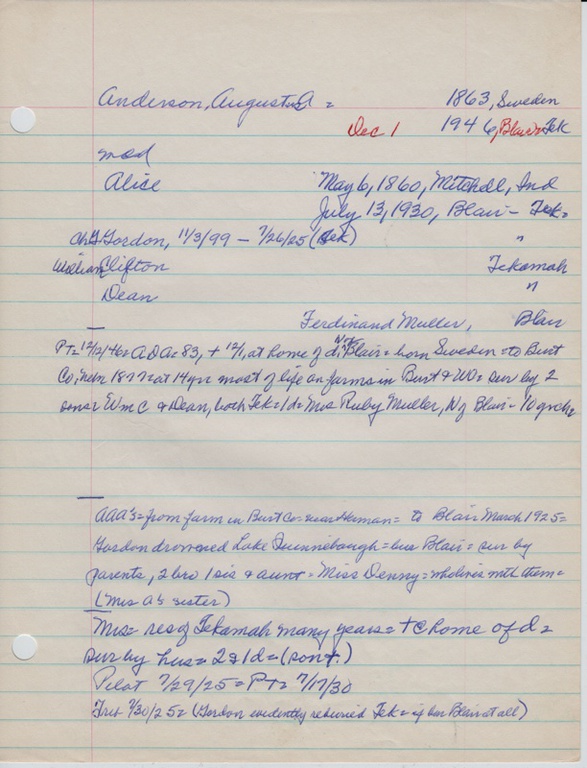 Anderson, August A = 1863, Sweden
Dec 1 1946, Blair = Tek
mod
Alice May 6, 1860, Mitchell, Ind
July 13, 1930, Blair - Tek =
ch: Gordon, 11/3/99 - 7/26/25 (Tek) "
William Clifton Tekamah
Dean "
Ferdinand Muller, Blair
PT = 12/12/46 = ADA = 83, + 12/1, at home of d, N of Blair = born Sweden = to Burt
Co, Neb 1877 at 14 yrs most of life on farms in Burt & WO = sur by 2
sons = Wm C & Dean, both Tek = 1 d = Mrs Ruby Muller, N of Blair - 10 grch =
AAA's = from farm in Burt Co = near Herman = to Blair March 1925 =
Gordon drowned Lake Quinnebaugh = bur Blair = sur by
parents, 2 bro 1 sis & aunt = Miss Denny = who lives with them =
(Mrs A's sister)
Mrs = res of Tekamah many years = + @ home of d =
sur by hus = 2 s 1 d =
Pilot 7/29/25 = PT = 7/17/30
7/30/25 = (Gordon evidently reburied Tek = if bur Blair at all)